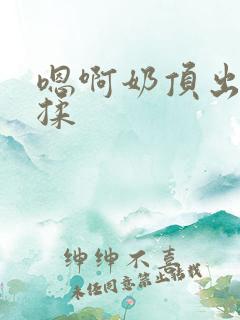 嗯啊奶頂出
揉
绅绅不喜
未经同意禁止转载